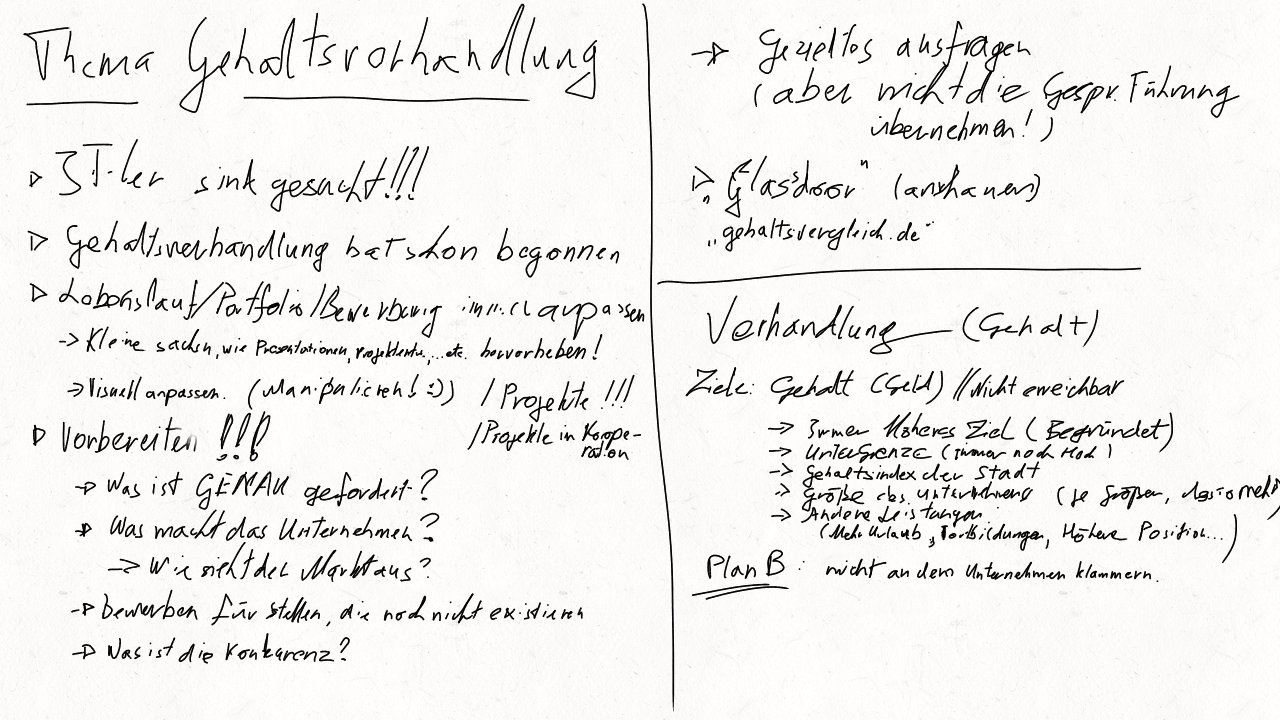 Thema Gehaltsverhandlung
IT-ler sink gesucht!!!
Gehaltsverhandlung hat schon begonnen
Lebenslauf/Portfolio/Bewerbung immer anpassen
-> Kleine sachen, wie Präsentationen, Projektleitung,...etc. hervorheben!
-> Visuell anpassen. (Manipulieren! :)) / Projekte !!!
/Projekte in Koope-
ration
Vorbereiten !!!
-> Was ist GENAU gefordert?
-> Was macht das Unternehmen?
-> Wie sieht der Markt aus?
-> bewerben für stellen, die noch nicht existieren
-> Was ist die Konkurenz?
-> Gezieltos ausfragen
(aber nicht die Gespr. Führung
übernehmen!)
"Glassdoor" (anshauen)
„gehaltsvergleich.de"
Verhandlung (Gehalt)
Ziele: Gehalt (Geld) //Nicht erreichbar
-> Immer Höheres Ziel (Begründet)
-> Untergrenze (immer noch Hoch)
-> Gehaltsindex der Stadt
-> Größe des Unternehmens (je größer, desto mehr)
-> Andere Leistungen
(Mehr Urlaub, Fortbildungen, Höhere Position...)
Plan B: nicht an dem Unternehmen klammern.